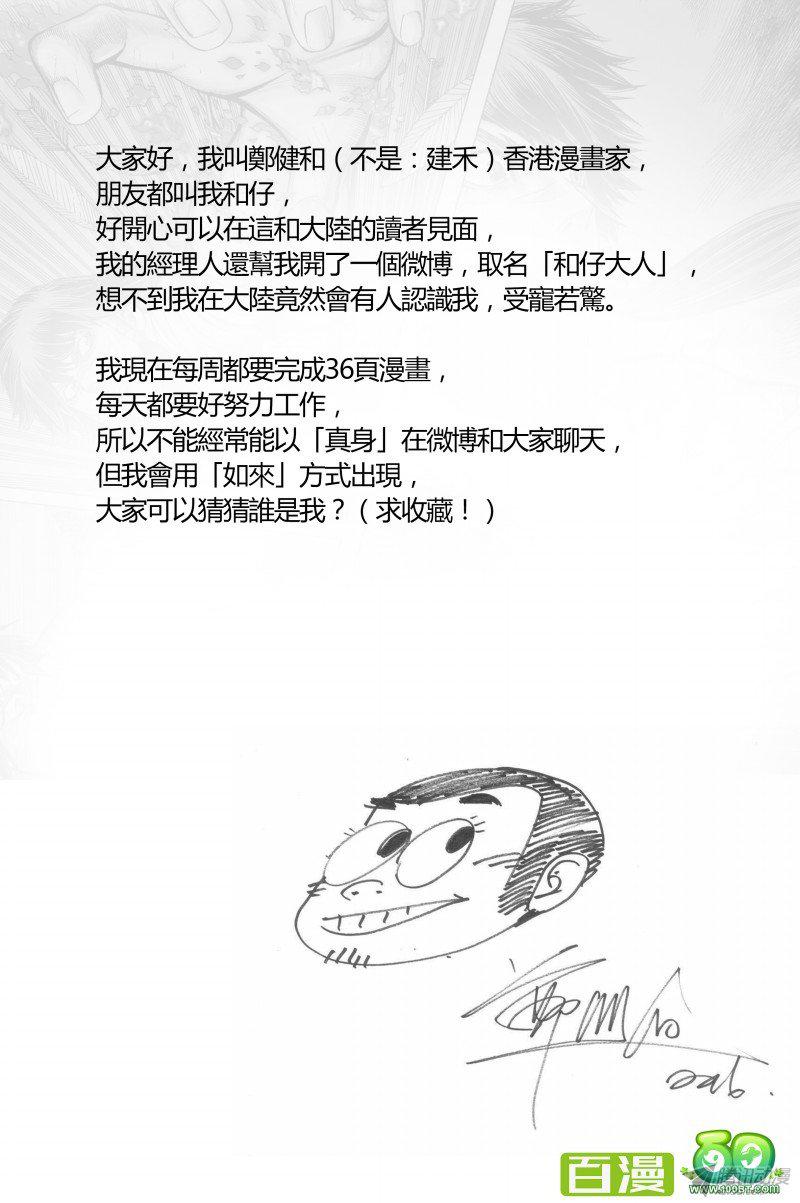 大家好，我叫鄭健和（不是：建禾）香港漫畫家，
朋友都叫我和仔，
好開心可以在這和大陸的讀者見面，
我的經理人還幫我開了一個微博，取名「和仔大人」，
想不到我在大陸竟然會有人認識我，受寵若驚。
我現在每周都要完成36頁漫畫，
每天都要好努力工作，
所以不能經常能以「真身」在微博和大家聊天，
但我會用「如來」方式出現，
大家可以猜猜誰是我？（求收藏！）
百漫